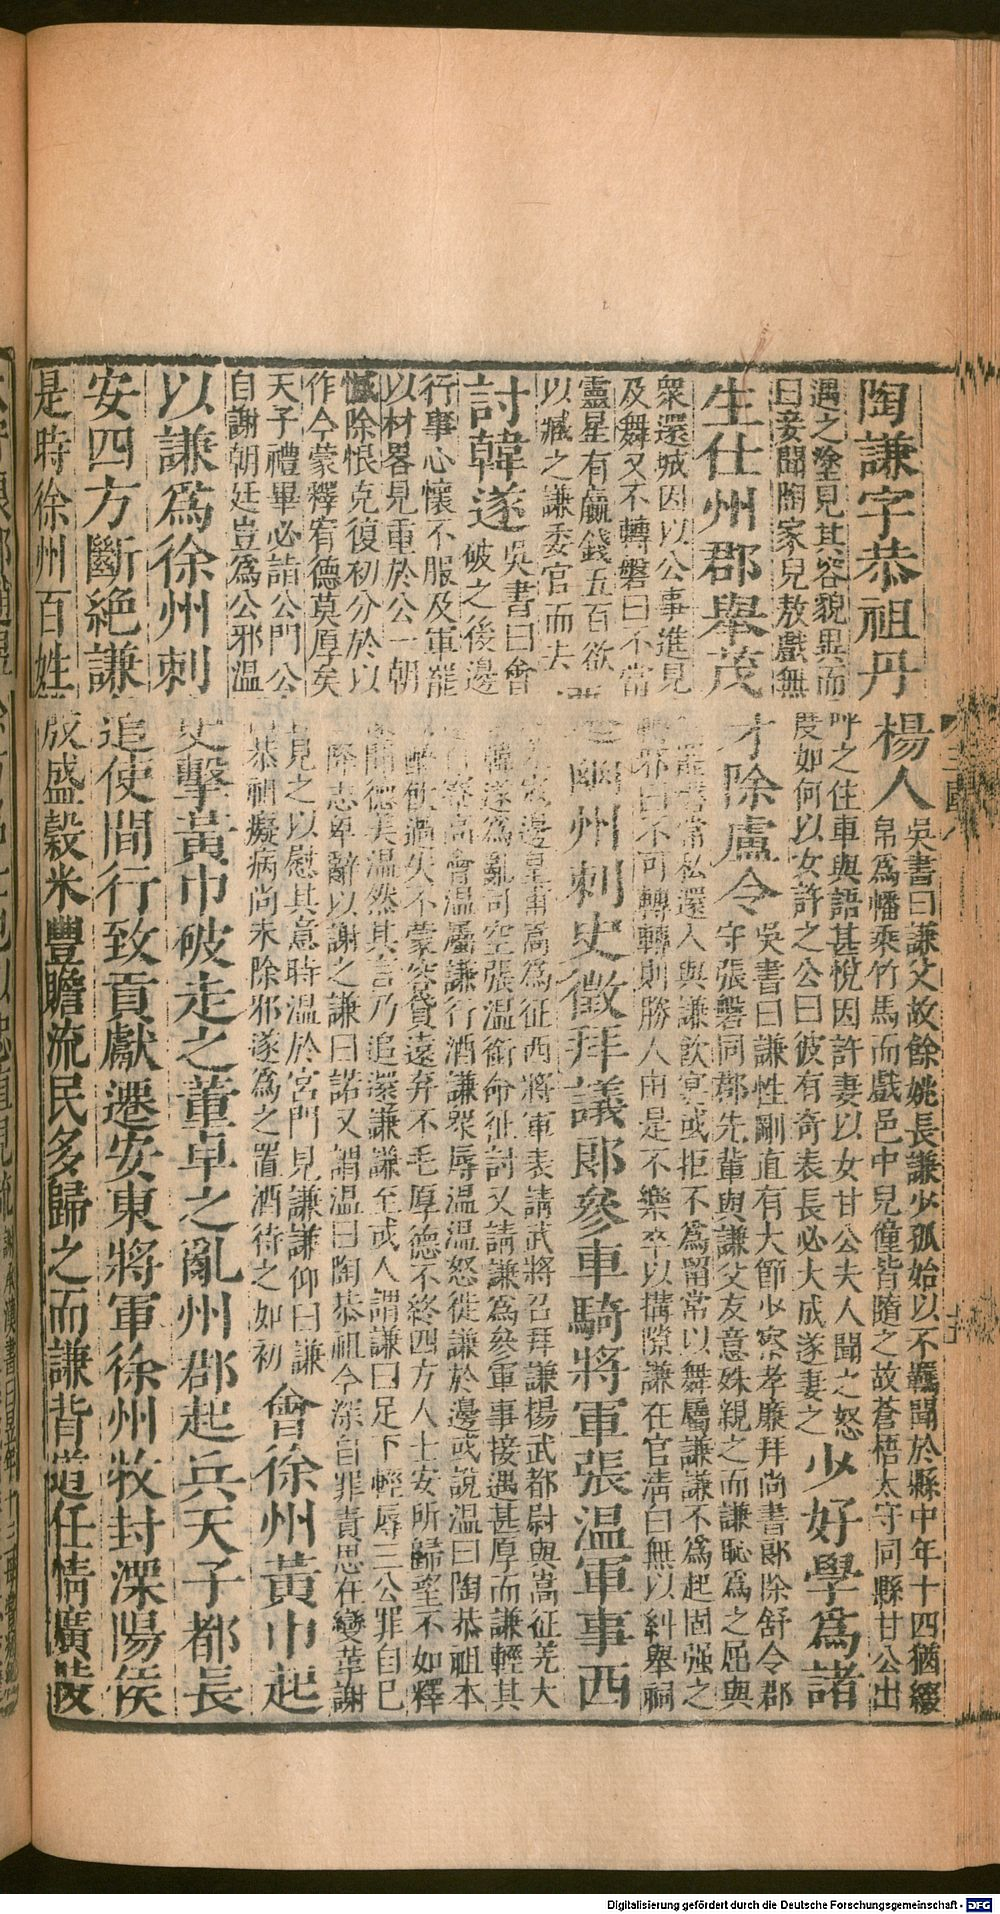 陶謙字恭祖丹楊人
吳書曰謙父故餘姚長謙少孤始以不羈聞於縣中年十四猶綴
帛爲幡乘竹馬而戲邑中兒僮皆隨之故蒼梧太守同縣甘公出
遇之塗見其容貌異而呼之住車與語甚悅因許妻以女甘公夫人聞之怒
曰妾聞陶家兒敖戲無度如何以女許之公曰彼有奇表長必大成遂妻之
少好學爲諸
生仕州郡舉茂才除盧令
吳書曰謙性剛直有大節少察孝廉拜尚書郎除舒令郡
守張磐同郡先輩與謙父友意殊親之而謙恥爲之屈與
衆還城因以公事進見或罷磐常私還入與謙飲宴或拒不爲留常以舞屬謙謙不爲起固强之
及舞又不轉磐曰不當轉邪曰不可轉轉則勝人由是不樂卒以搆隙謙在官淸白無以糾舉祠
靈星有贏錢五百欲
以臧之謙委官而去
遷幽州刺史徵拜議郎參車騎將軍張溫軍事西
討韓遂
吳書曰會西羌寇邊皇甫嵩爲征西將軍表請武將召拜謙揚武都尉與嵩征羌大
破之後邊章韓遂爲亂司空張溫銜命征討又請謙爲參軍事接遇甚厚而謙輕其
行事心懷不服及軍罷還百寮高會溫屬謙行酒謙衆辱溫溫怒徙謙於邊或說溫曰陶恭祖本
以材畧見重於公一朝以醉飲過失不蒙容貸遠弃不毛厚德不終四方人士安所歸望不如釋
憾除恨克復初分於以遠聞德美溫然其言乃追還謙謙至或人謂謙曰足下輕辱三公罪自己
作今蒙釋宥德莫厚矣宜降志卑辭以謝之謙曰諾又謂溫曰陶恭祖今深自罪責思在變革謝
天子禮畢必詣公門公宜見之以慰其意時溫於宮門見謙謙仰曰謙
自謝朝廷豈爲公邪溫曰恭祖癡病尚未除邪遂爲之置酒待之如初
會徐州黃巾起
以謙爲徐州刺史擊黃巾破走之董卓之亂州郡起兵天子都長
安四方斷絶謙追使間行致貢獻遷安東將軍徐州牧封溧陽侯
是時徐州百姓殷盛穀米豐贍流民多歸之而謙背道任情廣陵
Digitalisierung gefördert durch die Deutsche Forschungsgemeinschaft - DFG